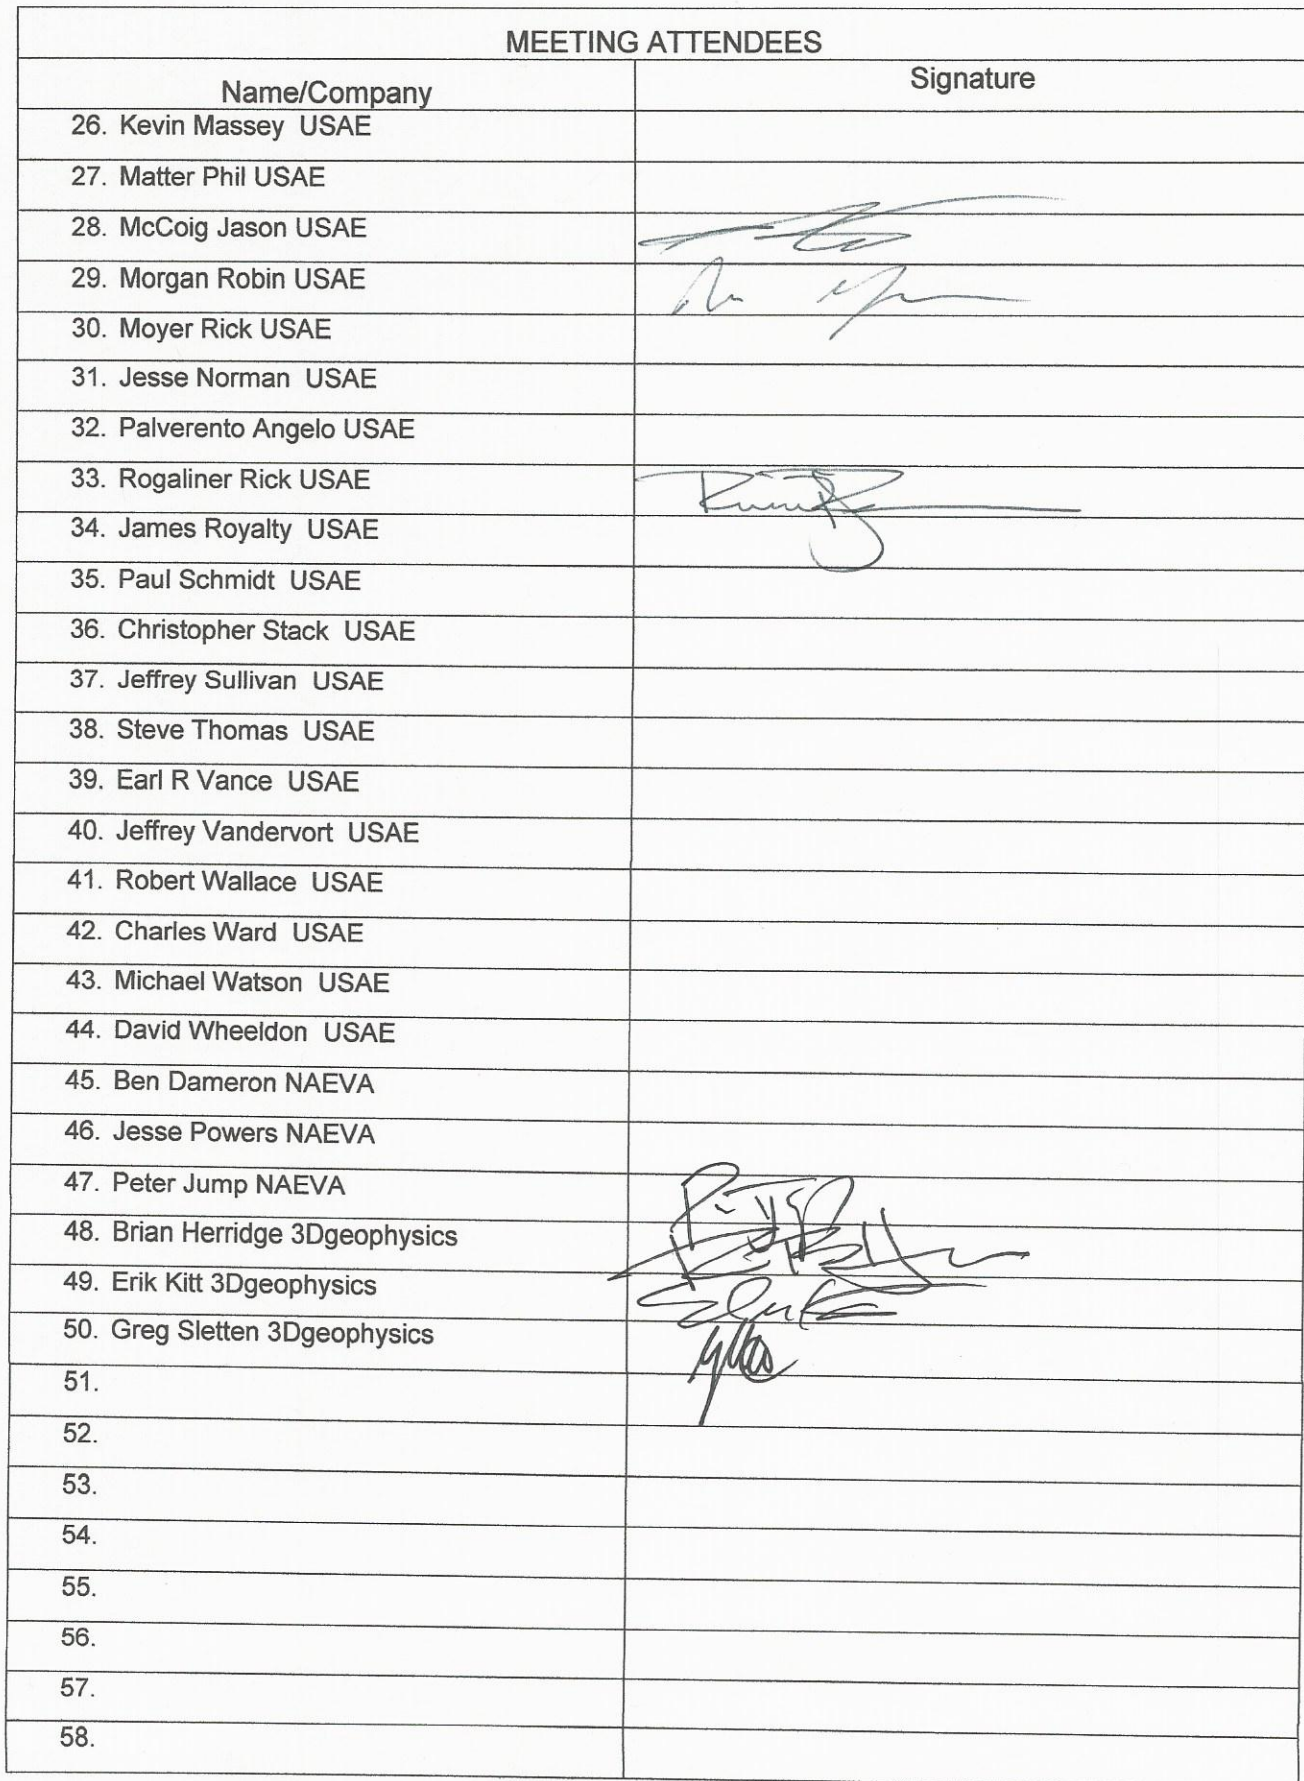 MEETING ATTENDEES
Name/Company Signature
26. Kevin Massey USAE
27. Matter Phil USAE
28. McCoig Jason USAE
29. Morgan Robin USAE
30. Moyer Rick USAE
31. Jesse Norman USAE
32. Palverento Angelo USAE
33. Rogaliner Rick USAE
34. James Royalty USAE
35. Paul Schmidt USAE
36. Christopher Stack USAE
37. Jeffrey Sullivan USAE
38. Steve Thomas USAE
39. Earl R Vance USAE
40. Jeffrey Vandervort USAE
41. Robert Wallace USAE
42. Charles Ward USAE
43. Michael Watson USAE
44. David Wheeldon USAE
45. Ben Dameron NAEVA
46. Jesse Powers NAEVA
47. Peter Jump NAEVA
48. Brian Herridge 3Dgeophysics
49. Erik Kitt 3Dgeophysics
50. Greg Sletten 3Dgeophysics
51.
52.
53.
54.
55.
56.
57.
58.